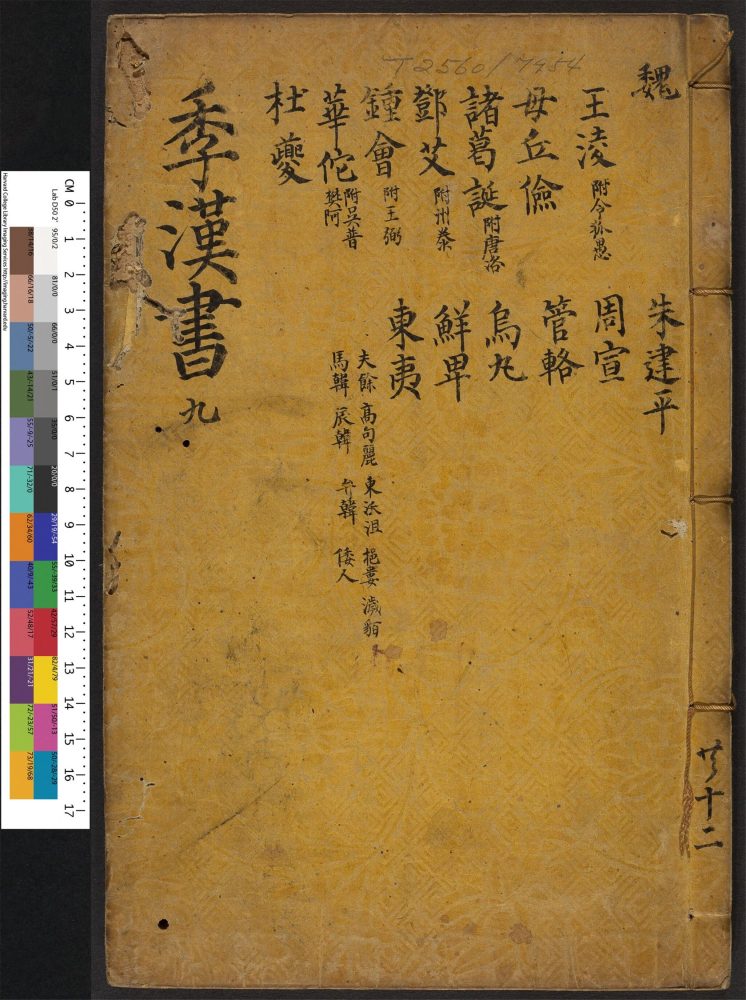 魏
王淩 附令狐愚
毋丘儉
諸葛誕 附唐咨
鄧艾 附州泰
鍾會 附王弼
華佗 附吳普 樊阿
杜夔
朱建平
周宣
管輅
烏丸
鮮卑
東夷
夫餘 高句麗 東沃沮 挹婁 濊貊
馬韓 辰韓 弁韓 倭人
季漢書 九
共十二
T 2560/7454
CM 0 1 2 3 4 5 6 7 8 9 10 11 12 13 14 15 16 17
Harvard College Library Imaging Services http://imaging.harvard.edu